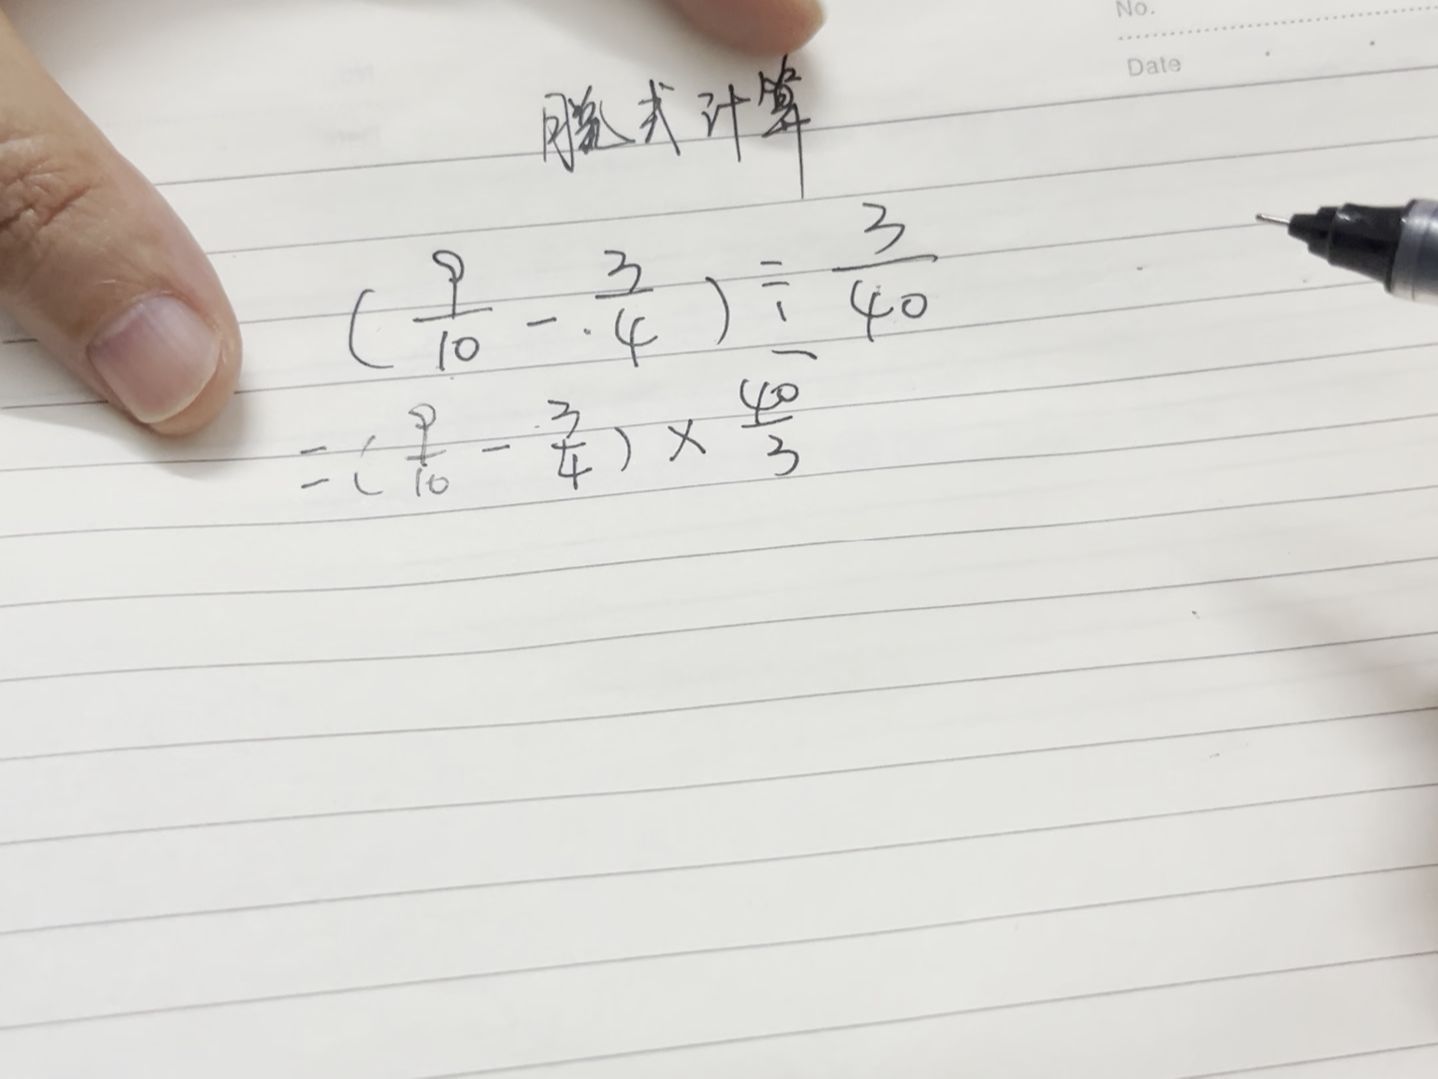 No.
Date
脱式计算
(9/10 - 3/4) ÷ 3/40
= (9/10 - 3/4) × 40/3